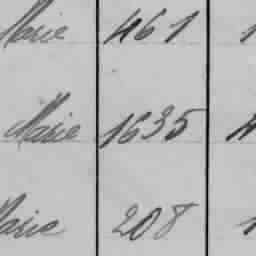 Marie 461 1
Marie 1635
Marie 208 1